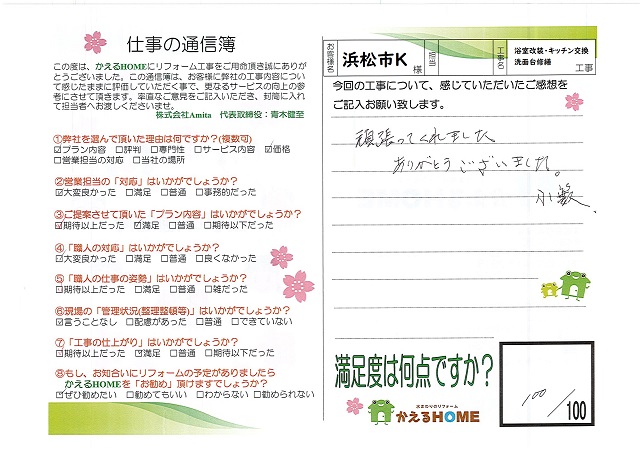 仕事の通信簿
この度は、かえるHOMEにリフォーム工事をご用命頂き誠にありが
とうございました。この通信簿は、お客様に弊社の工事内容につい
て感じたままに評価していただく事で、更なるサービスの向上の参
考にさせて頂きます。率直なご意見をご記入いただき、封筒に入れ
て担当者へお渡しくださいませ。
株式会社Amita 代表取締役：青木健至
①弊社を選んで頂いた理由は何ですか？(複数可)
☑プラン内容 □評判 □専門性 □サービス内容 ☑価格
□営業担当の対応 □当社の場所
②営業担当の「対応」はいかがでしょうか？
☑大変良かった □満足 □普通 □事務的だった
③ご提案させて頂いた「プラン内容」はいかがでしょうか？
☑期待以上だった ☑満足 □普通 □期待以下だった
④「職人の対応」はいかがでしょうか？
☑大変良かった □満足 □普通 □良くなかった
⑤「職人の仕事の姿勢」はいかがでしょうか？
☑期待以上だった □満足 □普通 □雑だった
⑥現場の「管理状況(整理整頓等)」はいかがでしょうか？
☑言うことなし □配慮があった □普通 □できていない
⑦「工事の仕上がり」はいかがでしょうか？
☑期待以上だった ☑満足 □普通 □期待以下だった
⑧もし、お知合いにリフォームの予定がありましたら
かえるHOMEを「お勧め」頂けますでしょうか？
☑ぜひ勧めたい □勧めてもいい □わからない □勧められない
お客様名 浜松市K 様 担当 工事名 浴室改装・キッチン交換
洗面台修繕 工事
今回の工事について、感じていただいたご感想を
ご記入お願い致します。
頑張ってくれました。
ありがとうございました。
小籔
満足度は何点ですか？
100/100
水まわりのリフォーム
かえるHOME